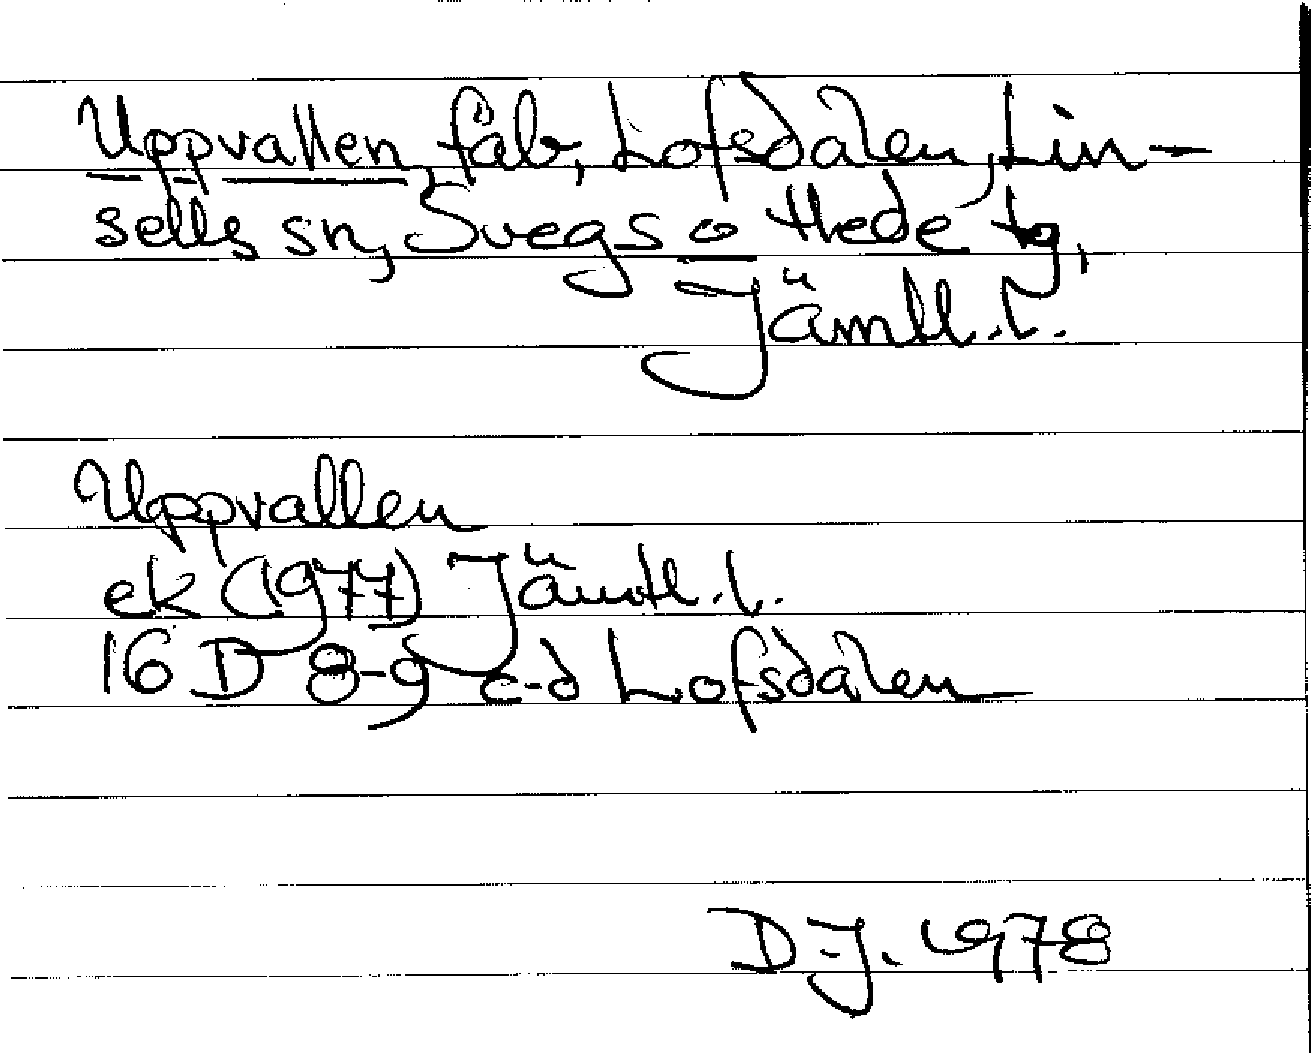 Uppvallen, fäb, Lofsdalen, Lin-
sells sn, Svegs o Hede tg,
Jämtl.l.
Uppvallen
ek (1977) Jämtl.l.
16 D 8-9 c-d Lofsdalen
D-J. 1978